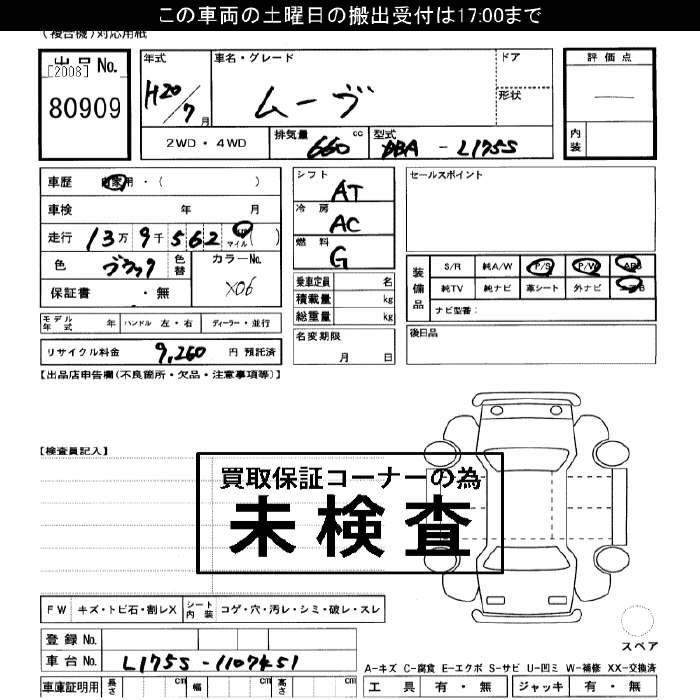 この車両の土曜日の搬出受付は17:00まで
(複合機)対応用紙
出品 No.
[2008]
80909
年式
H20/7 月
車名・グレード
ムーヴ
ドア
形状
評価点
—
内装
2WD・4WD
排気量 660 cc
型式 DBA - L175S
車歴 自家用・( )
車検 年 月
走行 13万9千562 km マイル ( )
色 ブラック 色替
カラーNo. X06
保証書 ・無
モデル年式 年 ハンドル 左・右 ディーラー・並行
リサイクル料金 9,260 円 預託済
シフト AT
冷房 AC
燃料 G
乗車定員 名
積載量 kg
総重量 kg
名変期限
月 日
セールスポイント
装備品
S/R 純A/W P/S P/W ABS
純TV 純ナビ 革シート 外ナビ エアB
ナビ型番:
後日品
【出品店申告欄(不良箇所・欠品・注意事項等)】
【検査員記入】
買取保証コーナーの為
未検査
FW キズ・トビ石・割レX シート内装 コゲ・穴・汚レ・シミ・破レ・スレ
登録 No.
車台 No. L175S-1107451
車庫証明用 長さ cm 幅 cm 高さ cm
スペア
A-キズ C-腐食 E-エクボ S-サビ U-凹ミ W-補修 XX-交換済
工具 有・無 ジャッキ 有・無